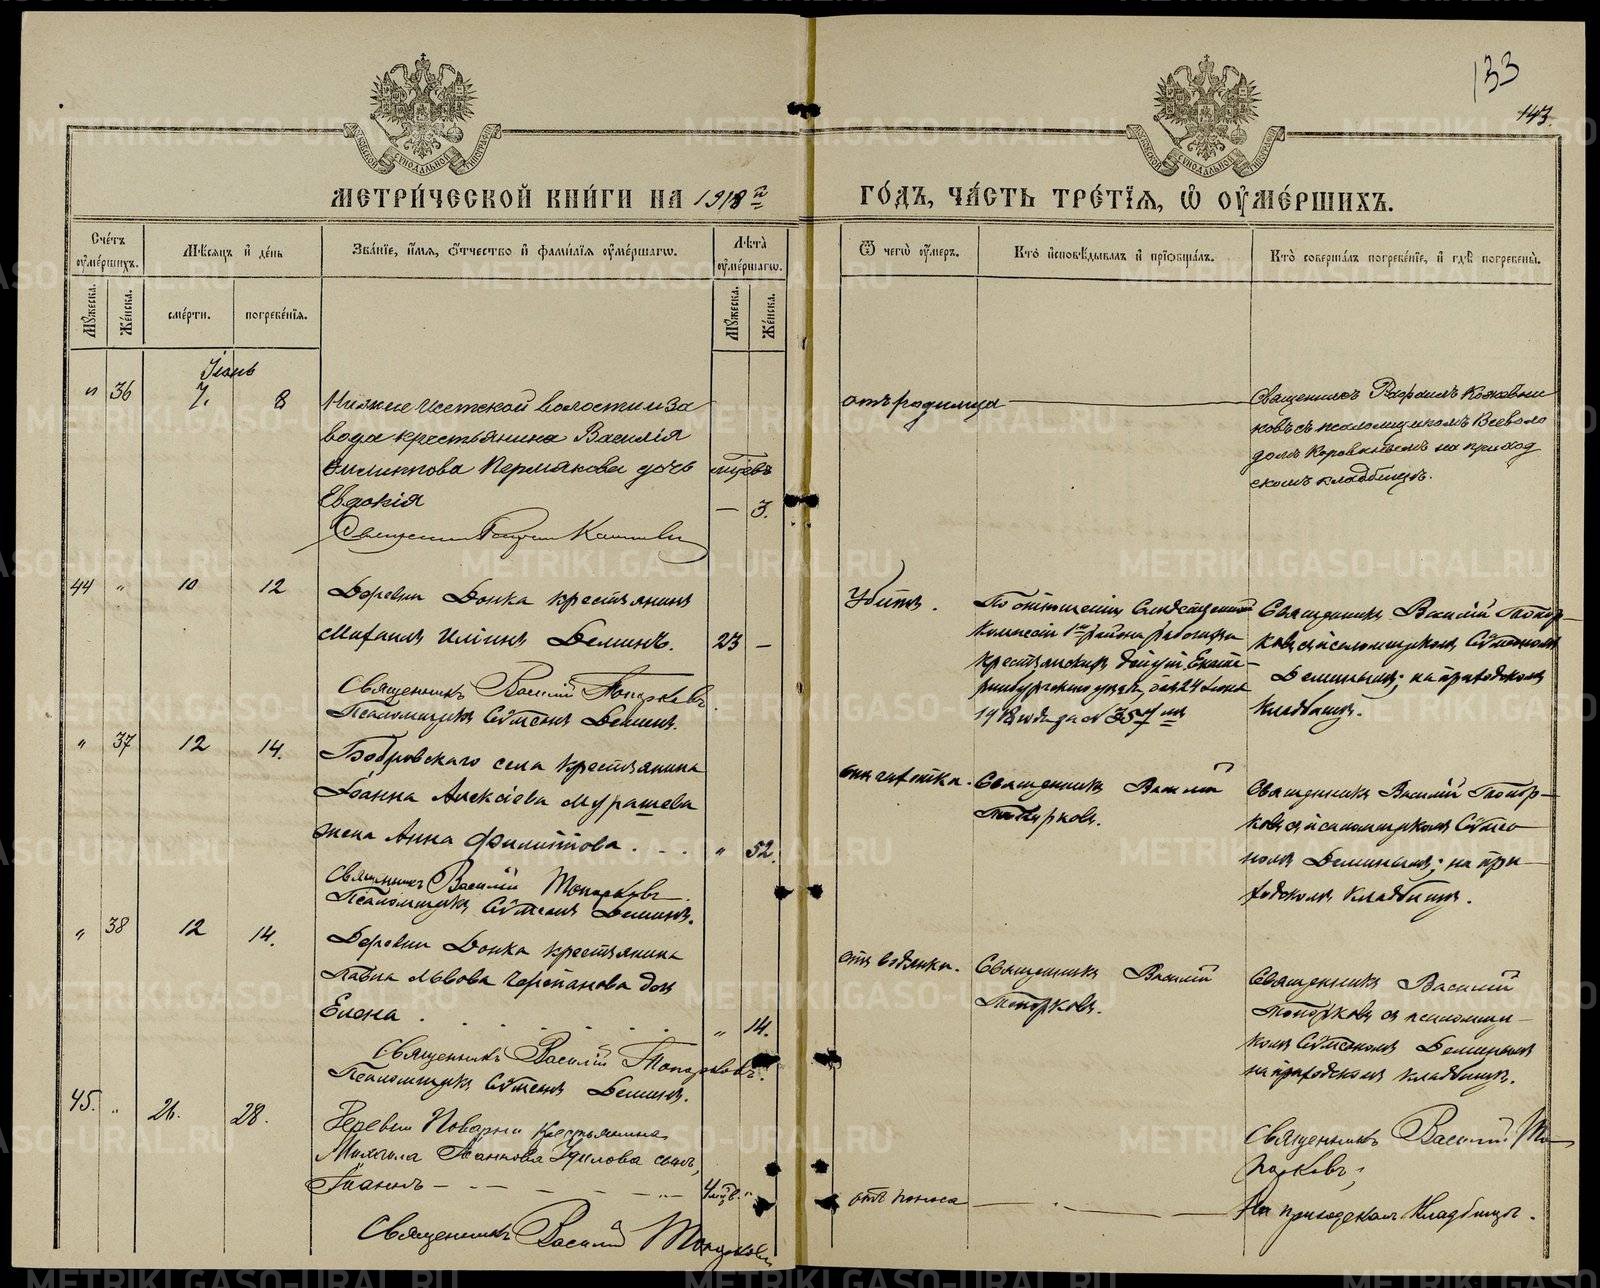 133
143.
МЕТРИ́ЧЕСКОЙ КНИ́ГИ НА 1918 й
ГО́ДЪ, ЧА́СТЬ ТРЕ́ТІЯ, Ѽ ОУ҆МЕ́РШИХЪ.
Сче́тъ оу҆ме́ршихъ.
Мѣ́сяцъ и҆ де́нь
Зва́нїе, и҆́мя, ѻ҆́тчество и҆ фами́лїя оу҆ме́ршагѡ.
Лѣ̀та̀ оу҆ме́ршагѡ.
Ѿ чегѡ̀ оу҆́меръ.
Кто̀ и҆сповѣ́дывалъ и҆ прїѡбща́лъ.
Кто̀ соверша́лъ погребе́нїе, и҆ гдѣ̀ погребены̀.
Мꙋ́жеска.
Же́нска.
сме́рти.
погребе́нїя.
Мꙋ́жеска.
Же́нска.
Іюнь
" 36 7. 8
Нижне Исетской волости и за
вода крестьянина Василія
Филиппова Пермякова дочь
Евдокія
мѣсяцъ
— 3.
отъ родимца
Священникъ Рафаилъ Кожевни
ковъ съ псаломщикомъ Всеволо
домъ Коровинымъ на приход
скомъ кладбищѣ.
44 " 10 12
Деревни Бонка крестьянинъ
Михаилъ Илiинъ Деминъ. 23 —
Священникъ Василій Топорковъ.
Псаломщикъ Сѵмеонъ Деминъ.
Убитъ.
По отношенію Следственной
Комиссіи 1го района Рабочихъ и
Крестьянскихъ депут. Екате-
ринбургскаго уезда, отъ 24 Іюня
1918 года за № 357 мъ
Священникъ Василій Топор-
ковъ съ псаломщикомъ Сѵмеономъ
Деминымъ; на приходскомъ
кладбищѣ.
" 37 12 14.
Бобровскаго села крестьянина
Іоанна Алексіева Мурашева
жена Анна Филиппова . . . " 52.
Священникъ Василій Топорковъ.
Псаломщикъ Сѵмеонъ Деминъ.
отъ чахотки.
Священникъ Василій
Топорковъ.
Священникъ Василій Топор-
ковъ съ псаломщикомъ Сѵмео-
номъ Деминымъ; на при-
ходскомъ кладбищѣ.
" 38 12 14.
Деревни Бонка крестьянина
Павла Львова Черепанова дочь
Елена . . . . . . . " 14.
Священникъ Василій Топорковъ.
Псаломщикъ Сѵмеонъ Деминъ.
отъ водянки.
Священникъ Василій
Топорковъ.
Священникъ Василій
Топорковъ съ псаломщи-
комъ Сѵмеономъ Деминымъ
на приходскомъ кладбищѣ.
45. " 26. 28.
Деревни Поварни крестьянина
Михаила сынъ,
Іоаннъ — — — — — 4 мѣс. "
Священникъ Василій Топорковъ
отъ поноса
Священникъ Василій То-
порковъ;
На приходскомъ кладбищѣ.
METRIKI.GASO-URAL.RU